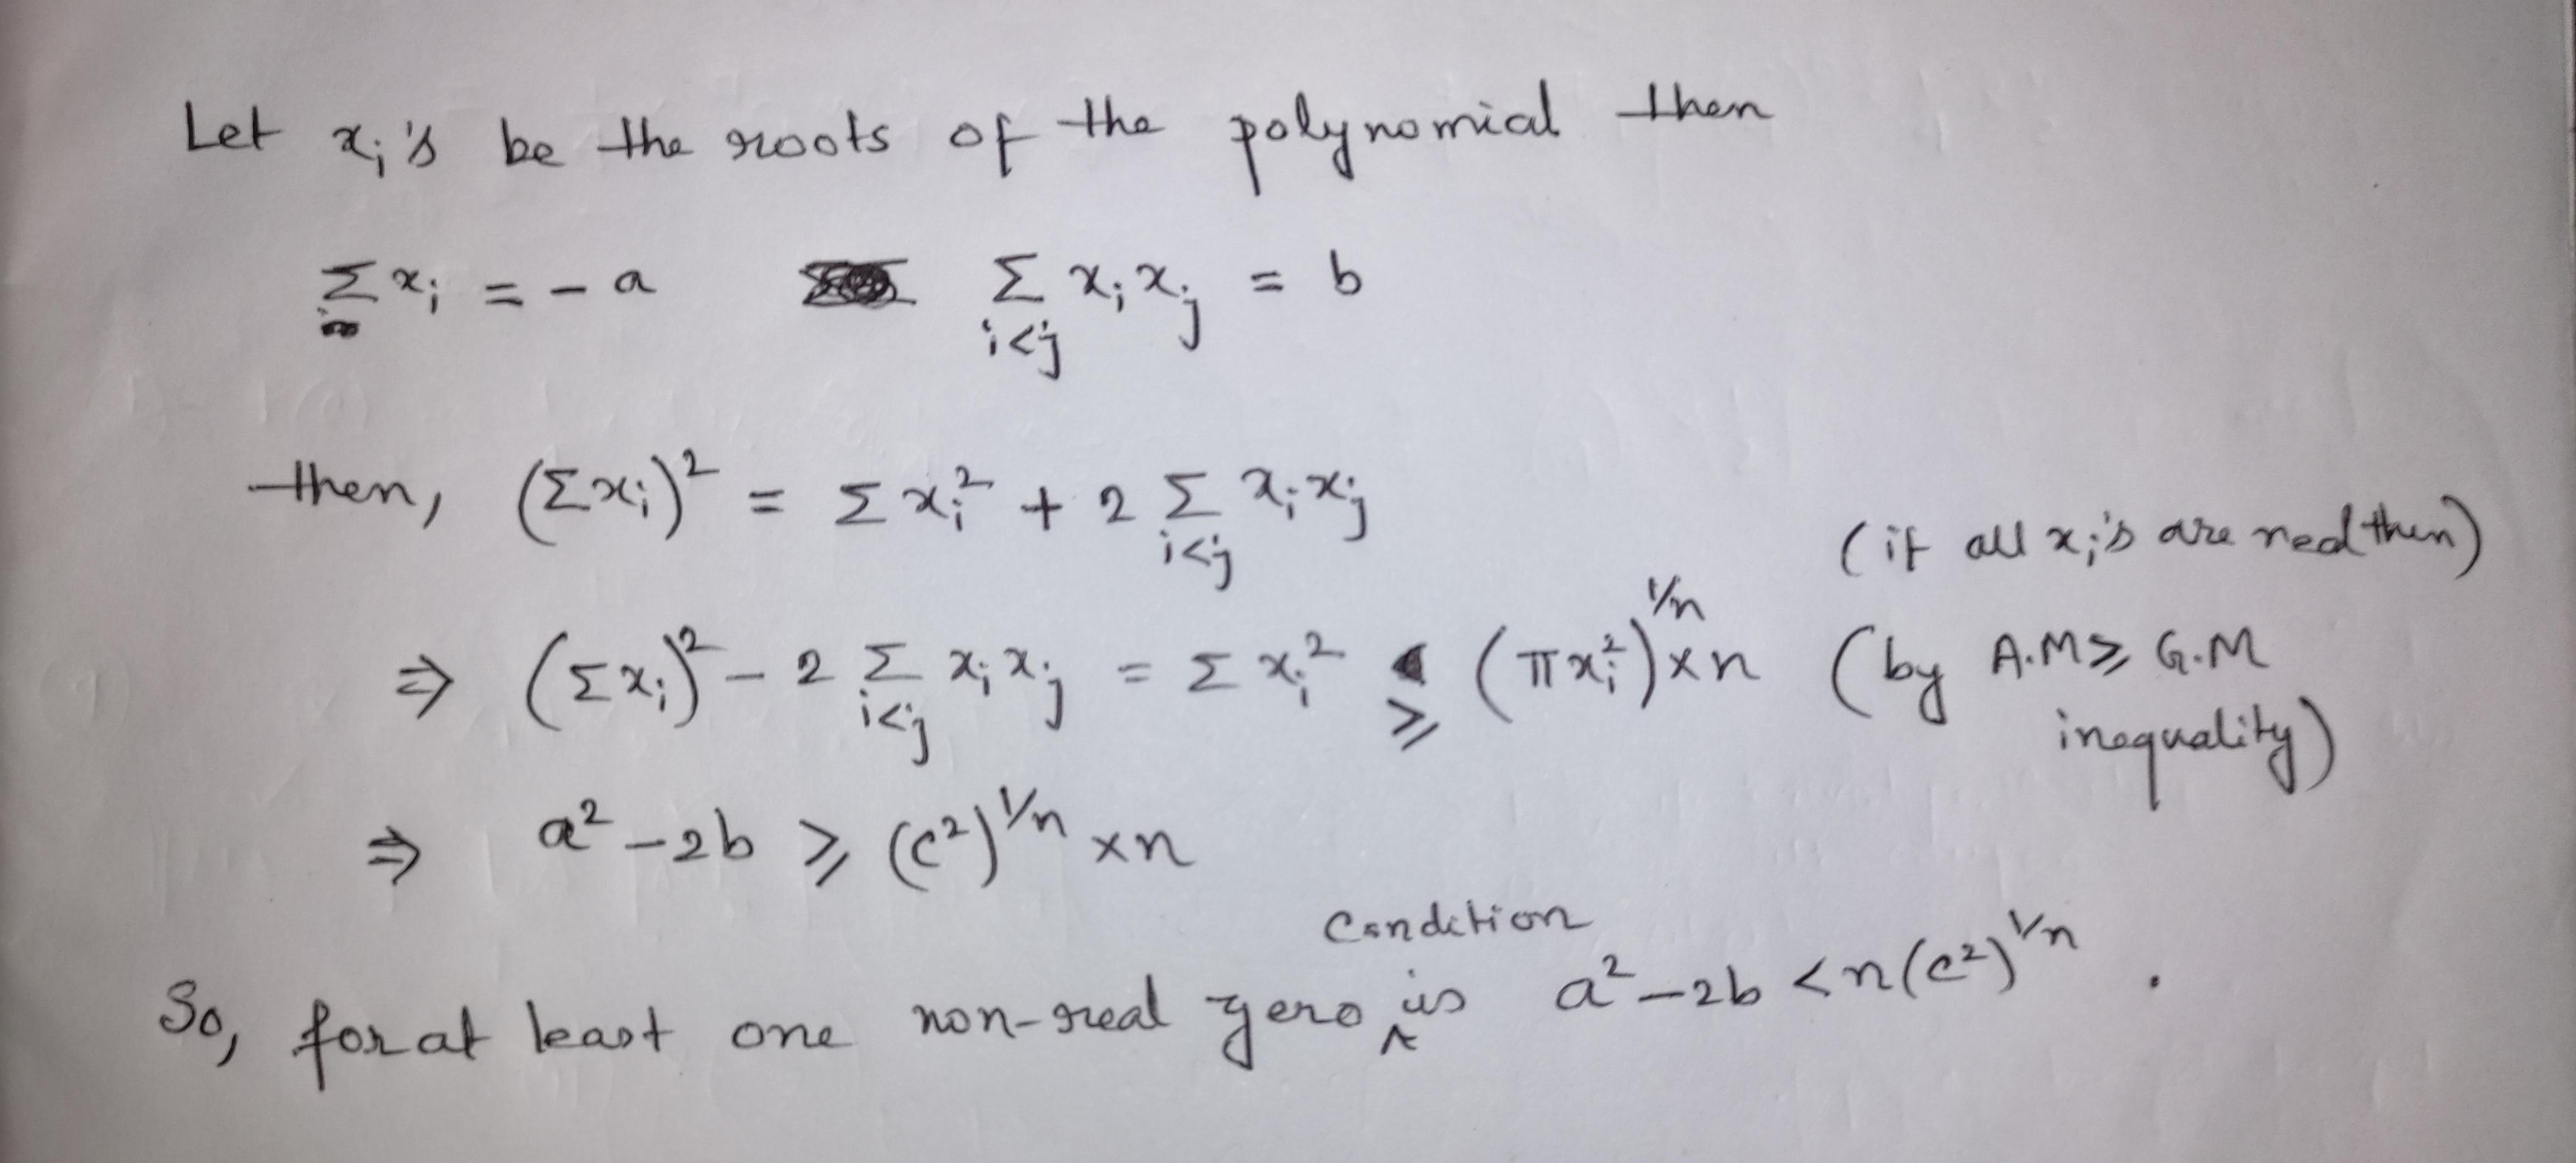 Let xᵢ's be the roots of the polynomial then
Σxᵢ = -a Σ_{i<j} xᵢxⱼ = b
then, (Σxᵢ)² = Σxᵢ² + 2 Σ_{i<j} xᵢxⱼ
(if all xᵢ's are real then)
⇒ (Σxᵢ)² - 2 Σ_{i<j} xᵢxⱼ = Σxᵢ² ≥ (πxᵢ²)^{1/n} × n (by A.M ≥ G.M
inequality)
⇒ a² - 2b ≥ (c²)^{1/n} × n
So, for at least one non-real zero condition is a² - 2b < n(c²)^{1/n} .